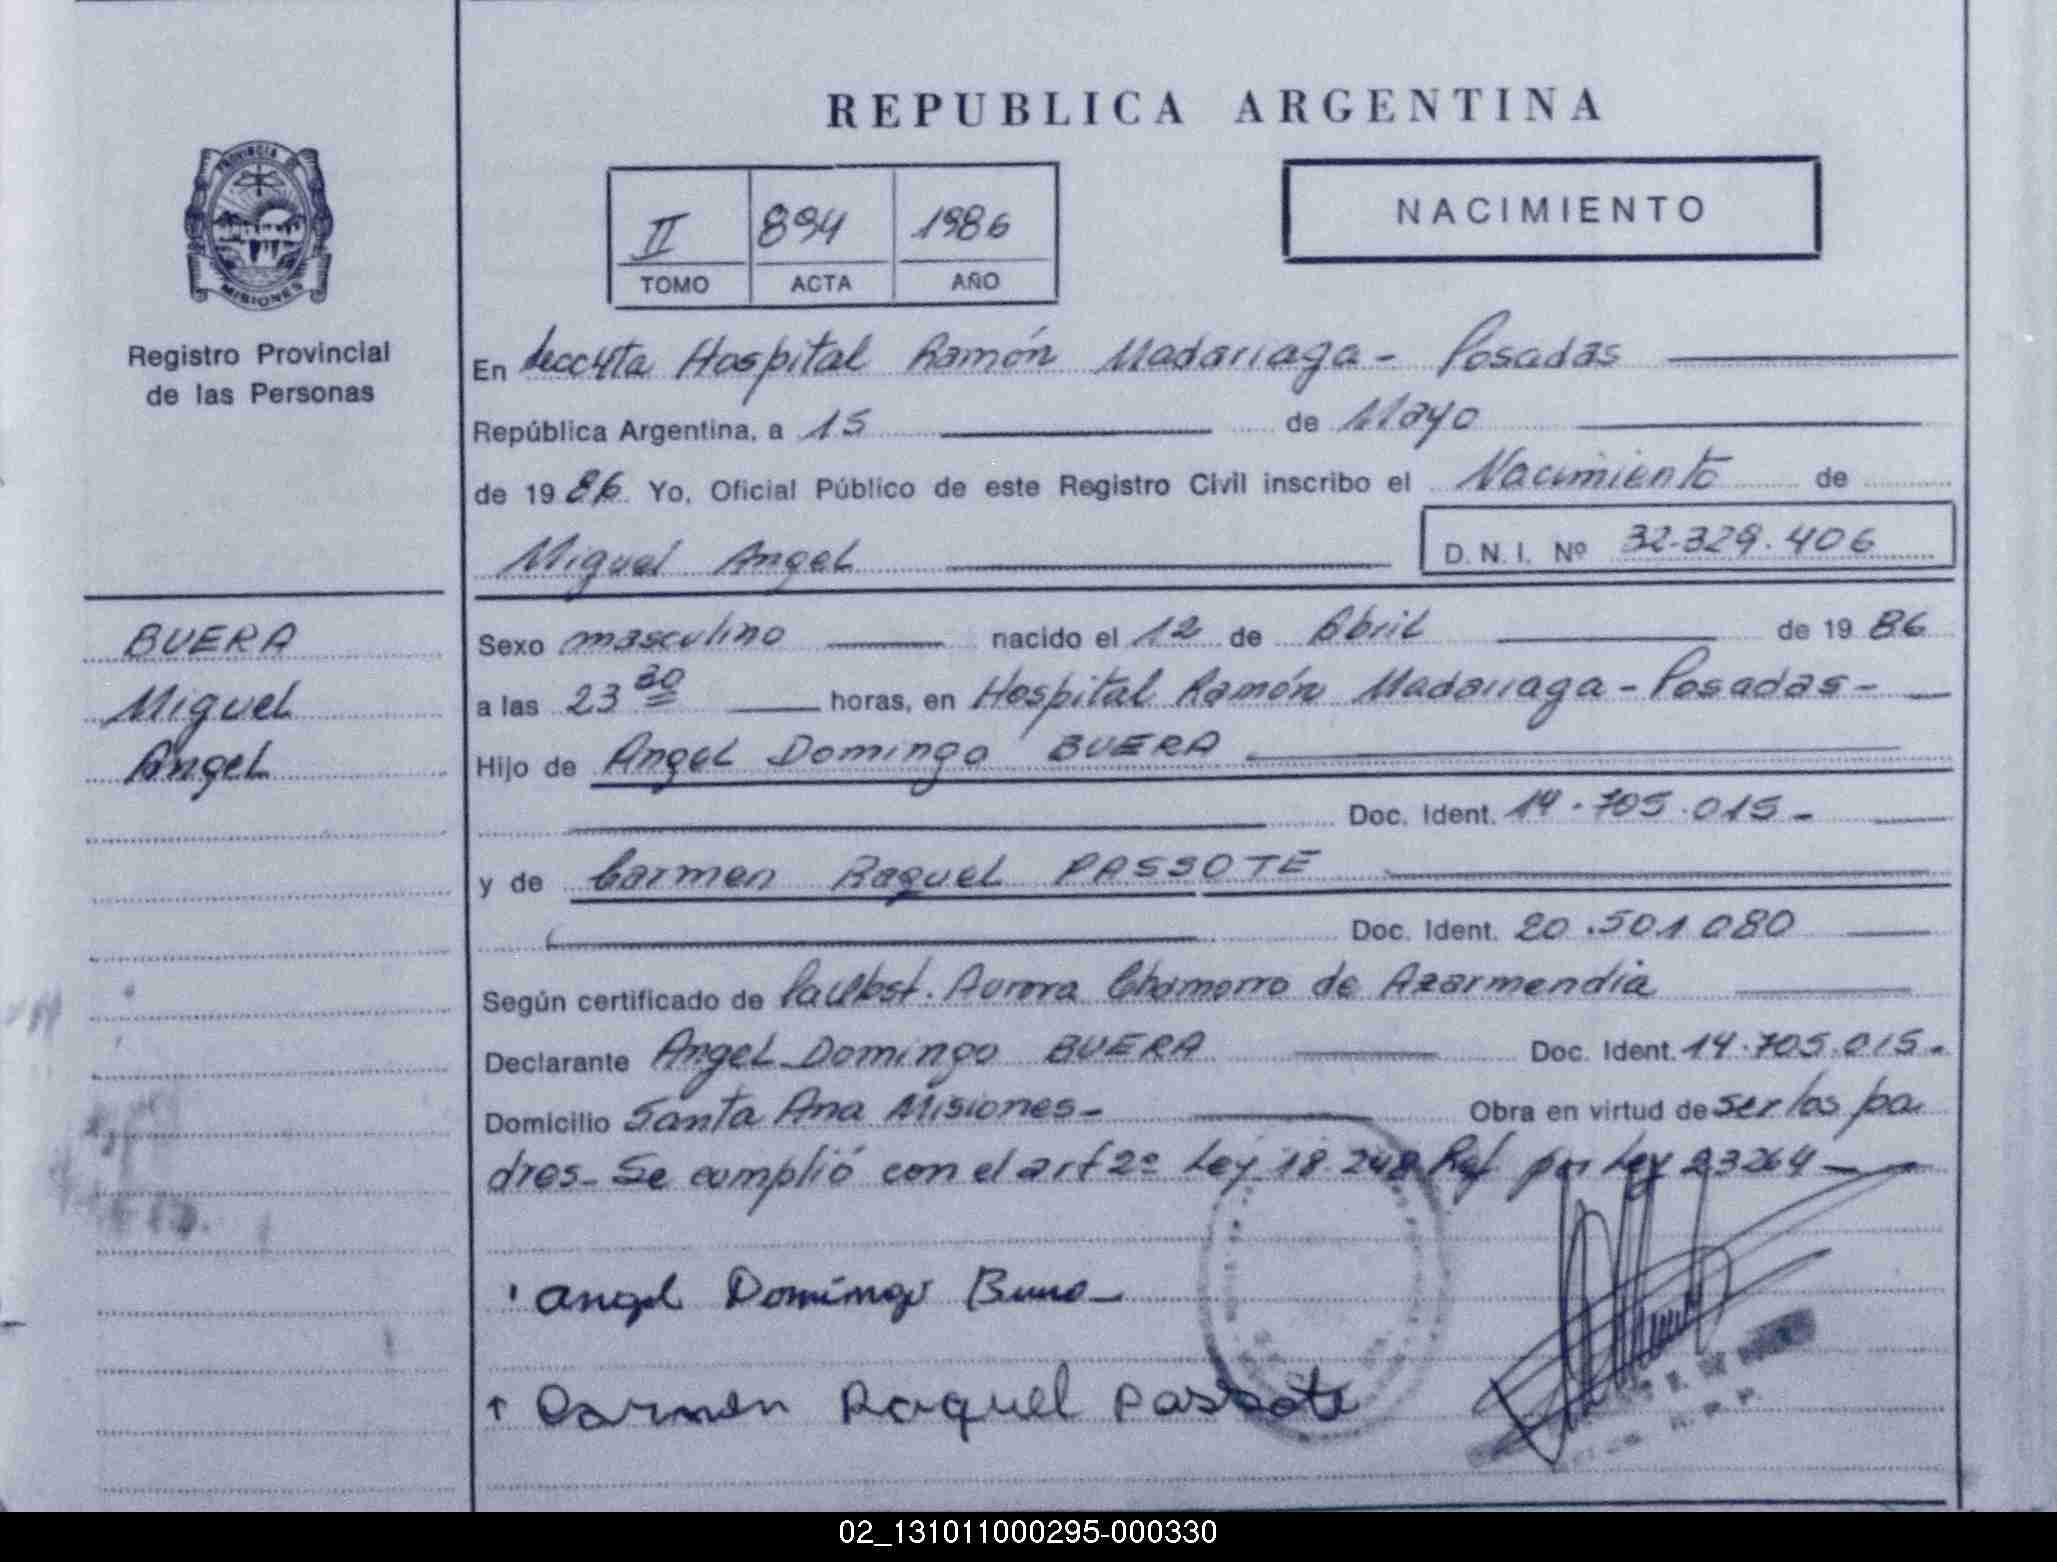 REPUBLICA ARGENTINA
PROVINCIA DE
MISIONES
Registro Provincial
de las Personas
II 894 1986
TOMO ACTA AÑO
NACIMIENTO
En Secc 4ta Hospital Ramón Madariaga - Posadas
República Argentina, a 15 de Mayo
de 1986 Yo, Oficial Público de este Registro Civil inscribo el Nacimiento de
Miguel Angel D. N. I. Nº 32.329.406
BUERA
Miguel
Angel
Sexo masculino nacido el 12 de Abril de 1986
a las 23 30 horas, en Hospital Ramón Madariaga - Posadas -
Hijo de Angel Domingo BUERA
Doc. Ident. 14.705.015 -
y de Carmen Raquel PASSOTE
Doc. Ident. 20.501.080
Según certificado de Aurora Chamorro de Azarmendia
Declarante Angel Domingo BUERA Doc. Ident. 14.705.015 -
Domicilio Santa Ana Misiones - Obra en virtud de ser los pa
dres - Se cumplió con el art 2º Ley 18.248 Ref. por Ley 23264 -
Angel Domingo Buera
Carmen Raquel Passote
02_131011000295-000330